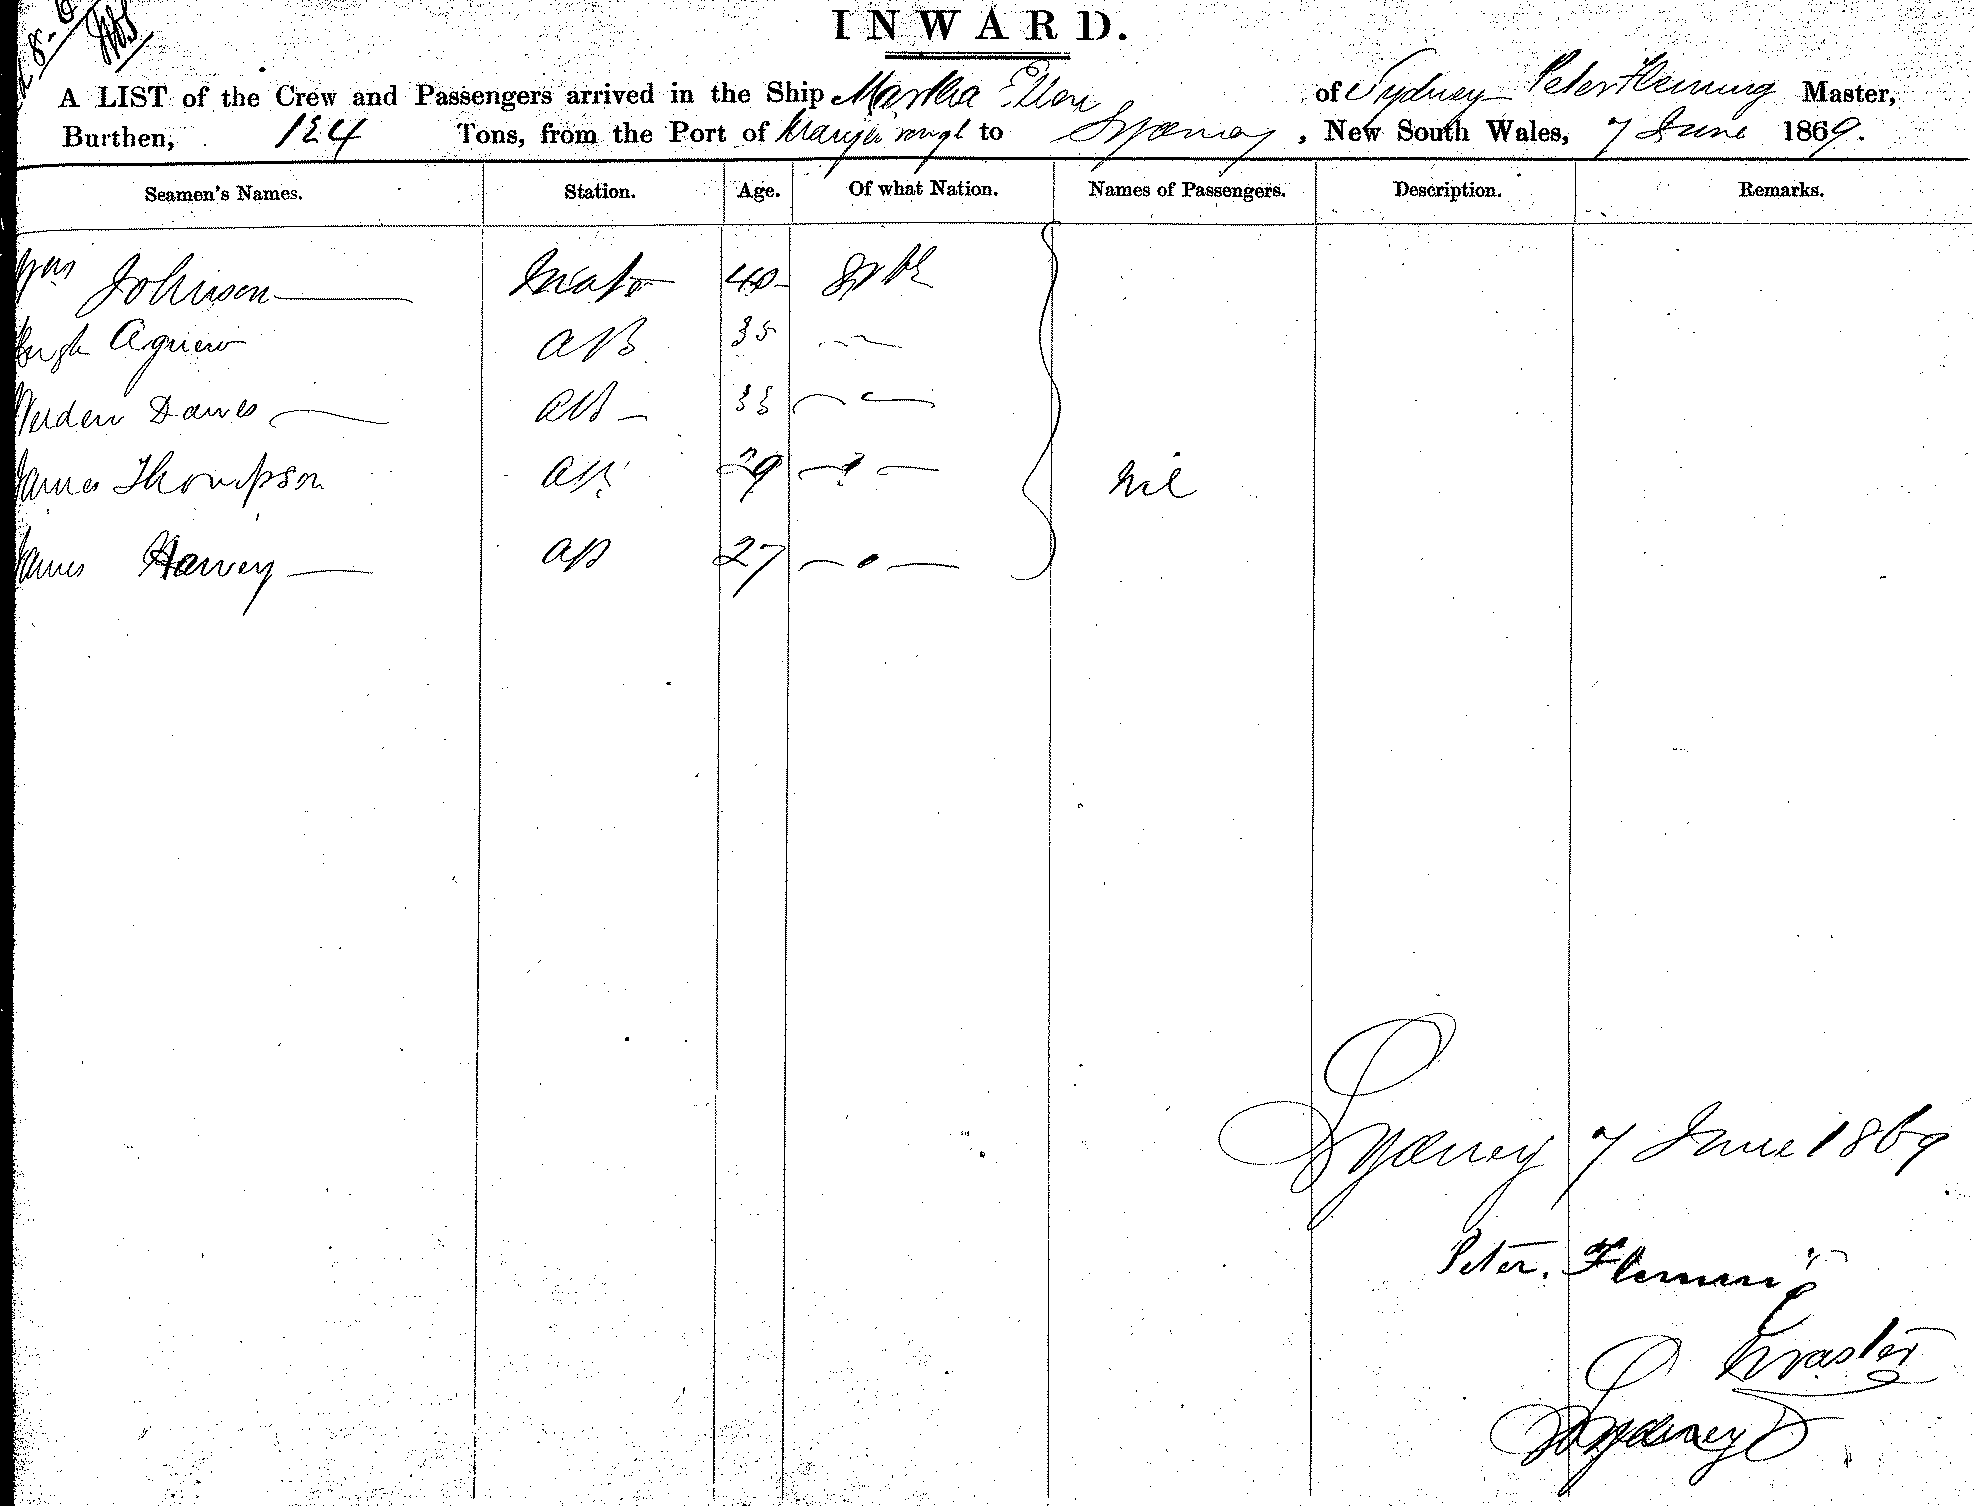 INWARD.
A LIST of the Crew and Passengers arrived in the Ship Martha Ellen of Sydney Peter Fleming Master,
Burthen, 124 Tons, from the Port of to Sydney, New South Wales, 7 June 1869.
Seamen's Names. Station. Age. Of what Nation. Names of Passengers. Description. Remarks.
Johnson Mate 40
Hugh Agnew AB 35
Dawes AB 33
James Thompson AB 29
James Harvey AB 27
Nil
Sydney 7 June 1869
Peter. Fleming
Master
Sydney